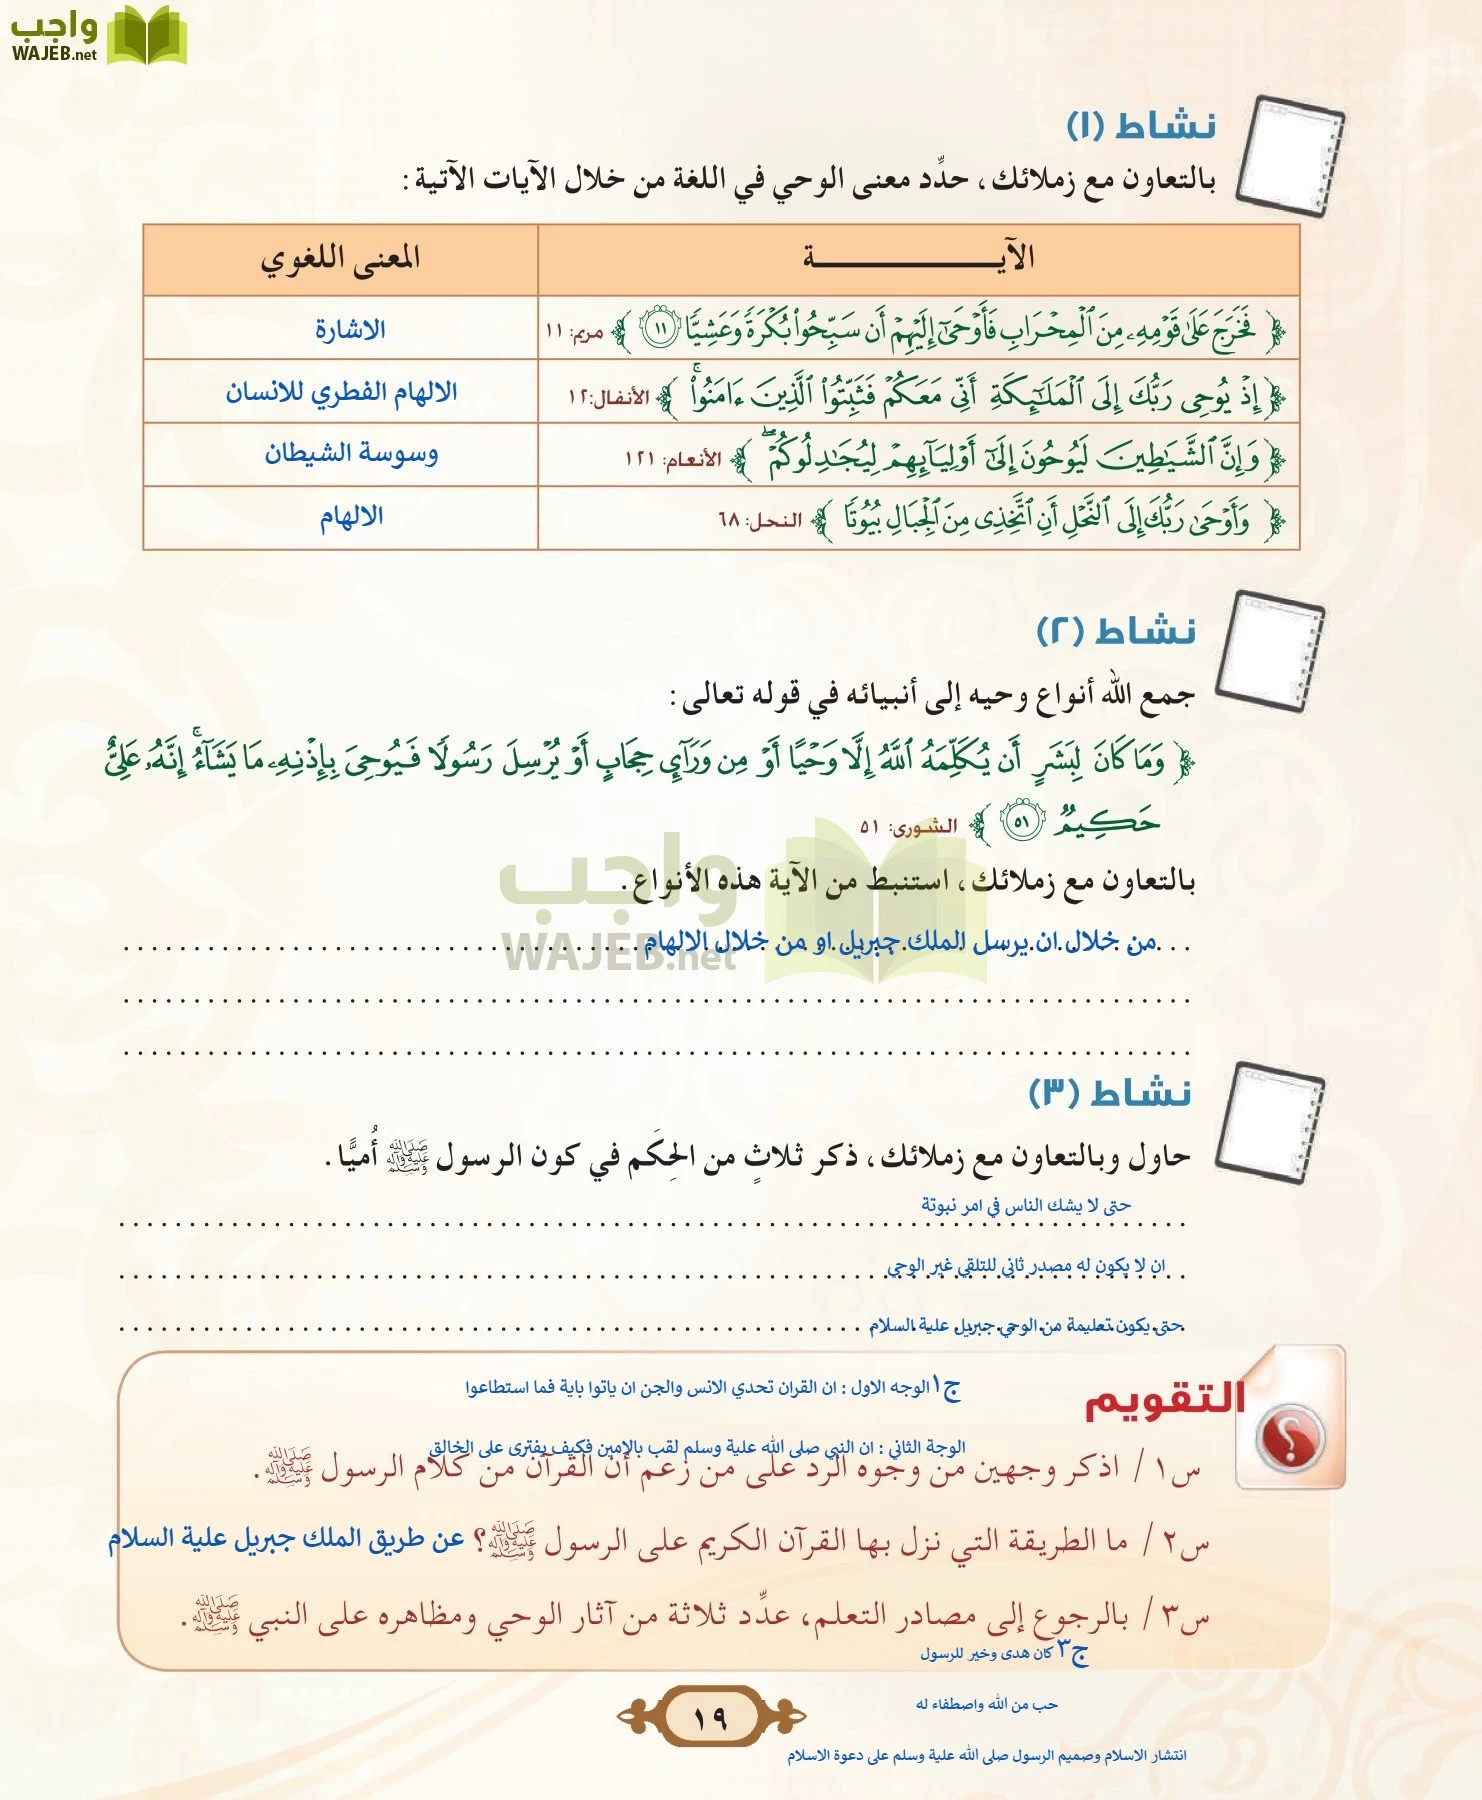 واجب
WAJEB.net
نشاط (١)
بالتعاون مع زملائك، حدِّد معنى الوحي في اللغة من خلال الآيات الآتية:
الآيـــــــــــــة المعنى اللغوي
﴿ فَخَرَجَ عَلَىٰ قَوْمِهِۦ مِنَ ٱلْمِحْرَابِ فَأَوْحَىٰٓ إِلَيْهِمْ أَن سَبِّحُوا۟ بُكْرَةً وَعَشِيًّا ١١ ﴾ مريم: ١١ الاشارة
﴿ إِذْ يُوحِى رَبُّكَ إِلَى ٱلْمَلَـٰٓئِكَةِ أَنِّى مَعَكُمْ فَثَبِّتُوا۟ ٱلَّذِينَ ءَامَنُوا۟ۚ ﴾ الأنفال: ١٢ الالهام الفطري للانسان
﴿ وَإِنَّ ٱلشَّيَـٰطِينَ لَيُوحُونَ إِلَىٰٓ أَوْلِيَآئِهِمْ لِيُجَـٰدِلُوكُمْۖ ﴾ الأنعام: ١٢١ وسوسة الشيطان
﴿ وَأَوْحَىٰ رَبُّكَ إِلَى ٱلنَّحْلِ أَنِ ٱتَّخِذِى مِنَ ٱلْجِبَالِ بُيُوتًا ﴾ النحل: ٦٨ الالهام
نشاط (٢)
جمع الله أنواع وحيه إلى أنبيائه في قوله تعالى:
﴿ وَمَا كَانَ لِبَشَرٍ أَن يُكَلِّمَهُ ٱللَّهُ إِلَّا وَحْيًا أَوْ مِن وَرَآئِ حِجَابٍ أَوْ يُرْسِلَ رَسُولًا فَيُوحِىَ بِإِذْنِهِۦ مَا يَشَآءُۚ إِنَّهُۥ عَلِىٌّ
حَكِيمٌ ٥١ ﴾ الشورى: ٥١
بالتعاون مع زملائك، استنبط من الآية هذه الأنواع.
من خلال ان يرسل الملك جبريل او من خلال الالهام
واجب
WAJEB.net
نشاط (٣)
حاول وبالتعاون مع زملائك، ذكر ثلاثٍ من الحِكَم في كون الرسول ﷺ أُميًّا.
حتى لا يشك الناس في امر نبوتة
ان لا يكون له مصدر ثاني للتلقي غير الوحي
حتى يكون تعليمة من الوحي جبريل علية السلام
التقويم
ج١ الوجه الاول : ان القران تحدي الانس والجن ان ياتوا باية فما استطاعوا
الوجة الثاني : ان النبي صلى الله علية وسلم لقب بالامين فكيف يفترى على الخالق
س١ / اذكر وجهين من وجوه الرد على من زعم أن القرآن من كلام الرسول ﷺ.
س٢ / ما الطريقة التي نزل بها القرآن الكريم على الرسول ﷺ؟ عن طريق الملك جبريل علية السلام
س٣ / بالرجوع إلى مصادر التعلم، عدِّد ثلاثة من آثار الوحي ومظاهره على النبي ﷺ.
ج٣ كان هدى وخير للرسول
حب من الله واصطفاء له
انتشار الاسلام وصميم الرسول صلى الله علية وسلم على دعوة الاسلام
١٩